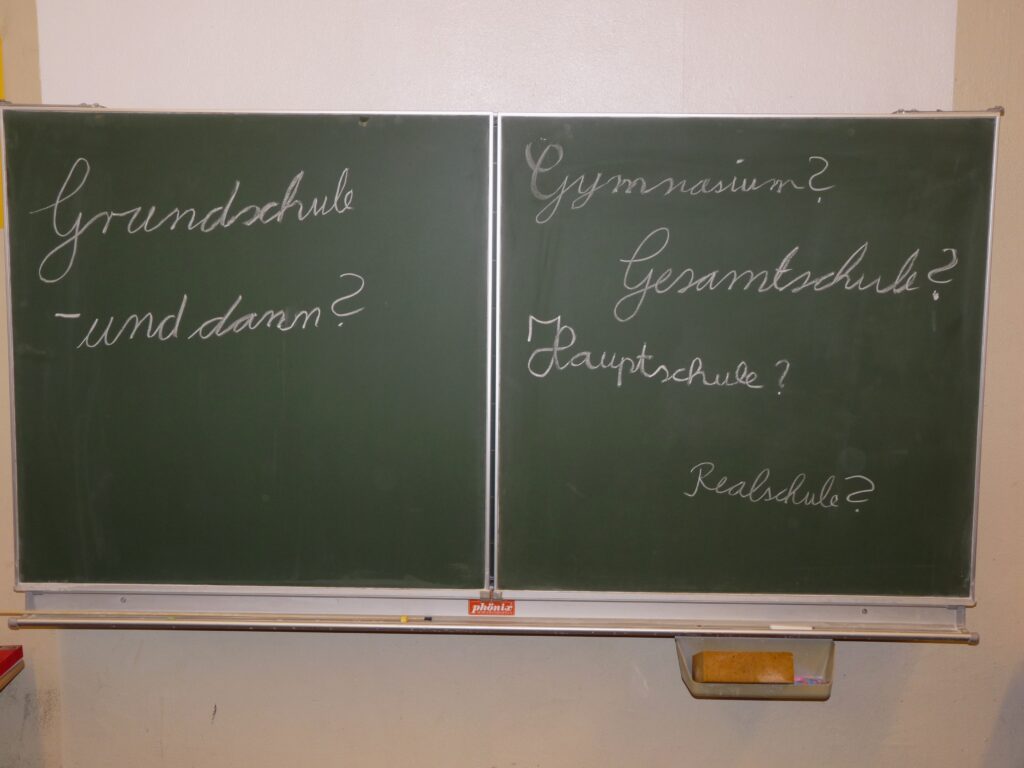 Grundschule
- und dann?
Gymnasium?
Gesamtschule?
Hauptschule?
Realschule?
phönix